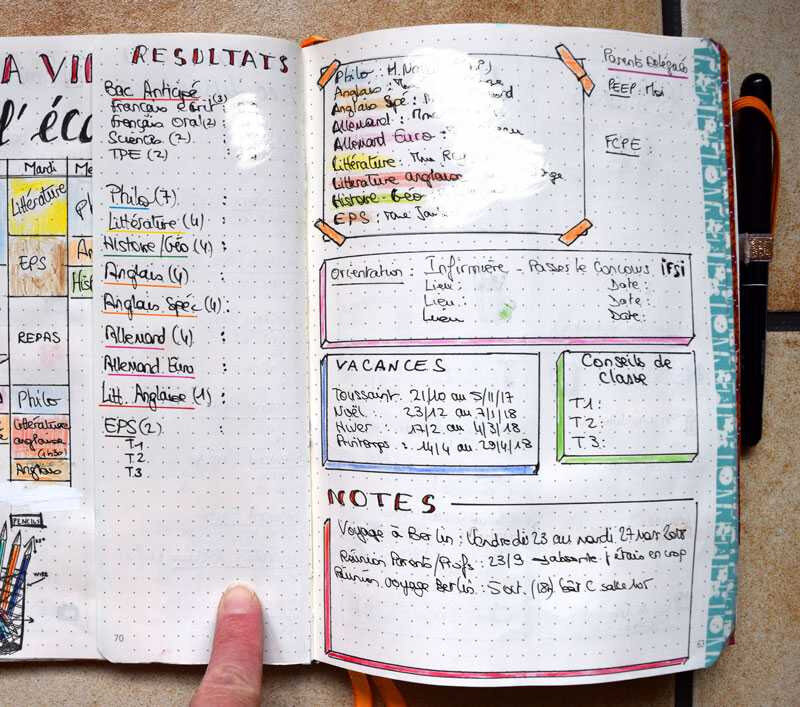 A VI
l'éc
Mardi
Me
Littérature
Ph
EPS
An
Hist
REPAS
Philo
Littérature
anglaise
(1h30)
Anglais
PENCILS
RESULTATS
Bac Anticipé
Français écrit (3)
Français Oral (2) :
Sciences (2) :
TPE (2)
Philo (7) :
Littérature (4) :
Histoire/Géo (4) :
Anglais (4) :
Anglais Spéc (4) :
Allemand (4) :
Allemand Euro
Litt. Anglaise (1) :
EPS (2) :
T1
T2
T3
70
Philo :
Anglais :
Anglais Spé :
Allemand :
Allemand Euro
Littérature : Mme
Litterature anglaise
Histoire-Géo
EPS :
Parents Délégués
PEEP :
FCPE :
Orientation : Infirmière - Passer le Concours IFSI
Lieu : Date :
Lieu : Date :
Lieu Date :
VACANCES
Toussaint : 21/10 au 5/11/17
Noël : 23/12 au 7/1/18
Hiver : 17/2 au 4/3/18
Printemps : 14/4 au 29/4/18
Conseils de
Classe
T1 :
T2 :
T3 :
NOTES
Voyage à Berlin : Vendredi 23 au mardi 27 mars 2018
Réunion Parents/Profs : 23/9 → absente j'étais en
Réunion voyage Berlin : 5 oct. (18h) Bât C salle